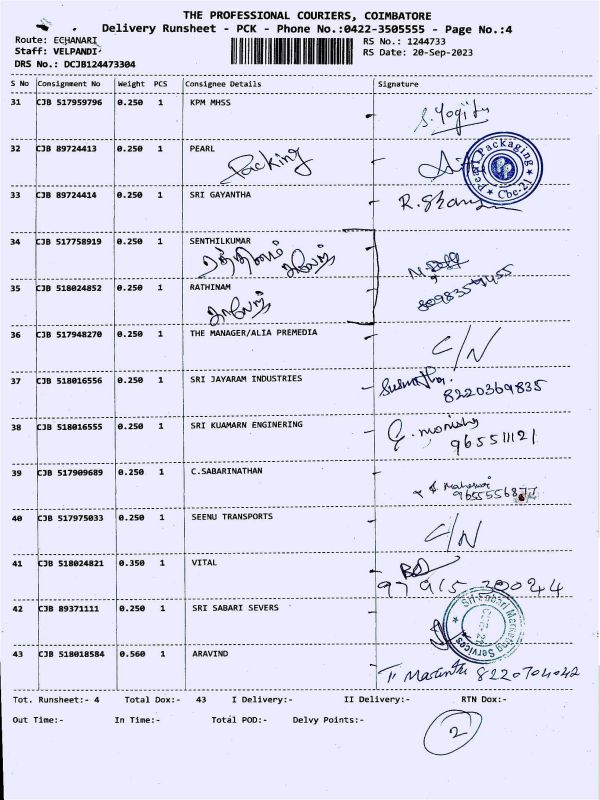 THE PROFESSIONAL COURIERS, COIMBATORE
Delivery Runsheet - PCK - Phone No.:0422-3505555 - Page No.:4
Route: ECHANARI
RS No.: 1244733
Staff: VELPANDI
RS Date: 20-Sep-2023
DRS No.: DCJB124473304
S No Consignment No Weight PCS Consignee Details Signature
31 CJB 517959796 0.250 1 KPM MHSS
S. Yogi
32 CJB 89724413 0.250 1 PEARL
Packing
Pearl Packaging Cbe-21
33 CJB 89724414 0.250 1 SRI GAYANTHA
34 CJB 517758919 0.250 1 SENTHILKUMAR
ரத்தினம்
35 CJB 518024852 0.250 1 RATHINAM
36 CJB 517948270 0.250 1 THE MANAGER/ALIA PREMEDIA
C/N
37 CJB 518016556 0.250 1 SRI JAYARAM INDUSTRIES
8220369835
38 CJB 518016555 0.250 1 SRI KUAMARN ENGINERING
965511121
39 CJB 517909689 0.250 1 C.SABARINATHAN
40 CJB 517975033 0.250 1 SEENU TRANSPORTS
C/N
41 CJB 518024821 0.350 1 VITAL
42 CJB 89371111 0.250 1 SRI SABARI SEVERS
43 CJB 518018584 0.560 1 ARAVIND
8220704042
Tot. Runsheet:- 4 Total Dox:- 43 I Delivery:- II Delivery:- RTN Dox:-
Out Time:- In Time:- Total POD:- Delvy Points:-
2